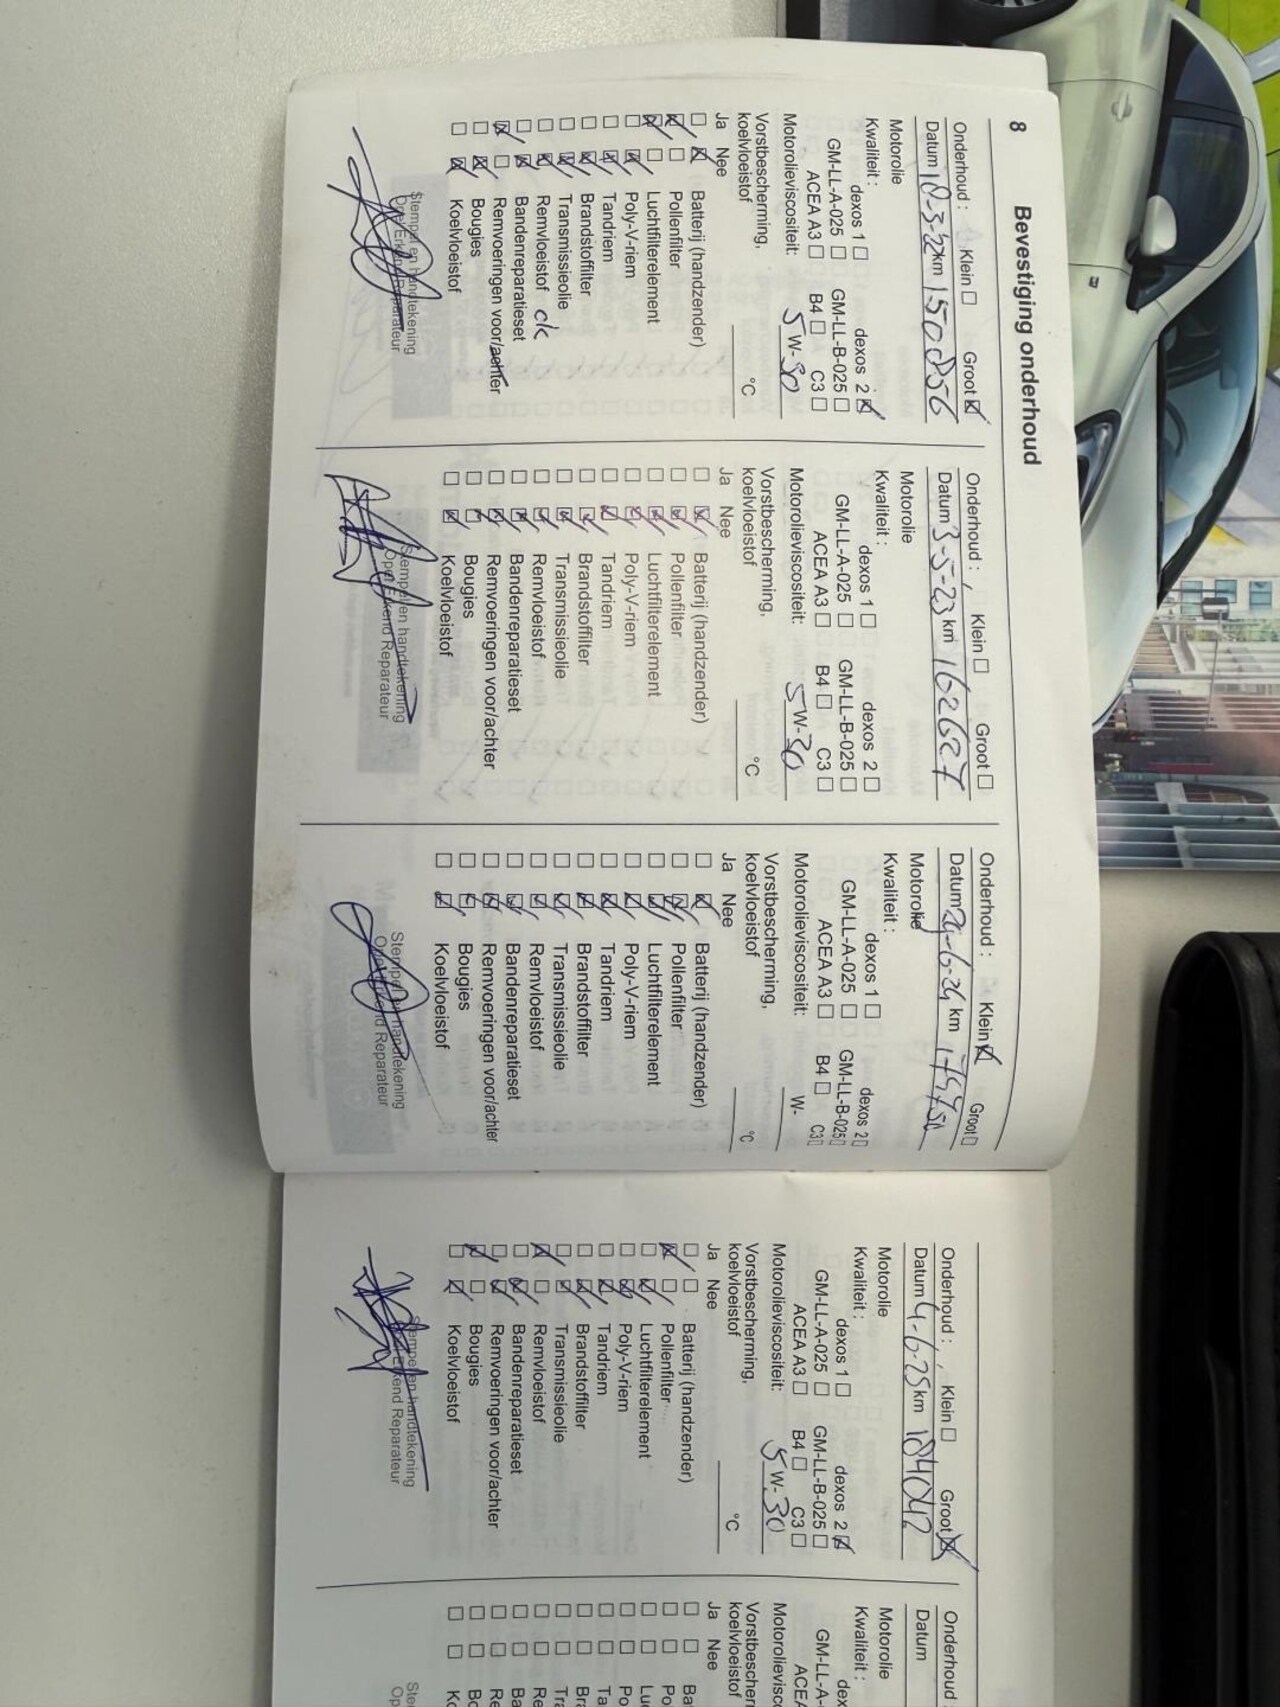 8 Bevestiging onderhoud
Onderhoud : Klein Groot
Datum 18-3-22 km 150856
Motorolie
Kwaliteit : dexos 1 dexos 2
GM-LL-A-025 GM-LL-B-025
ACEA A3 B4 C3
Motorolieviscositeit: 5 W-30
Vorstbescherming,
koelvloeistof °C
Ja Nee
Batterij (handzender)
Pollenfilter
Luchtfilterelement
Poly-V-riem
Tandriem
Brandstoffilter
Transmissieolie
Remvloeistof ok
Bandenreparatieset
Remvoeringen voor/achter
Bougies
Koelvloeistof
Stempel en handtekening
Opel Erkend Reparateur
Onderhoud : Klein Groot
Datum 3-5-23 km 162627
Motorolie
Kwaliteit : dexos 1 dexos 2
GM-LL-A-025 GM-LL-B-025
ACEA A3 B4 C3
Motorolieviscositeit: 5 W-30
Vorstbescherming,
koelvloeistof °C
Ja Nee
Batterij (handzender)
Pollenfilter
Luchtfilterelement
Poly-V-riem
Tandriem
Brandstoffilter
Transmissieolie
Remvloeistof
Bandenreparatieset
Remvoeringen voor/achter
Bougies
Koelvloeistof
Stempel en handtekening
Opel Erkend Reparateur
Onderhoud : Klein Groot
Datum km
Motorolie
Kwaliteit : dexos 1 dexos 2
GM-LL-A-025 GM-LL-B-025
ACEA A3 B4 C3
Motorolieviscositeit: W-
Vorstbescherming,
koelvloeistof °C
Ja Nee
Batterij (handzender)
Pollenfilter
Luchtfilterelement
Poly-V-riem
Tandriem
Brandstoffilter
Transmissieolie
Remvloeistof
Bandenreparatieset
Remvoeringen voor/achter
Bougies
Koelvloeistof
Stempel en handtekening
Opel Erkend Reparateur
Onderhoud : Klein Groot
Datum 4-6-25 km 184042
Motorolie
Kwaliteit : dexos 1 dexos 2
GM-LL-A-025 GM-LL-B-025
ACEA A3 B4 C3
Motorolieviscositeit: 5 W-30
Vorstbescherming,
koelvloeistof °C
Ja Nee
Batterij (handzender)
Pollenfilter
Luchtfilterelement
Poly-V-riem
Tandriem
Brandstoffilter
Transmissieolie
Remvloeistof
Bandenreparatieset
Remvoeringen voor/achter
Bougies
Koelvloeistof
Stempel en handtekening
Opel Erkend Reparateur
Onderhoud
Datum
Motorolie
Kwaliteit : dex
GM-LL-A-
ACEA
Motorolievisco
Vorstbescherm
koelvloeistof
Ja Nee
Ba
Po
Lu
Po
Ta
Bra
Tra
Re
Ba
Re
Bo
Ko
Ste
Op